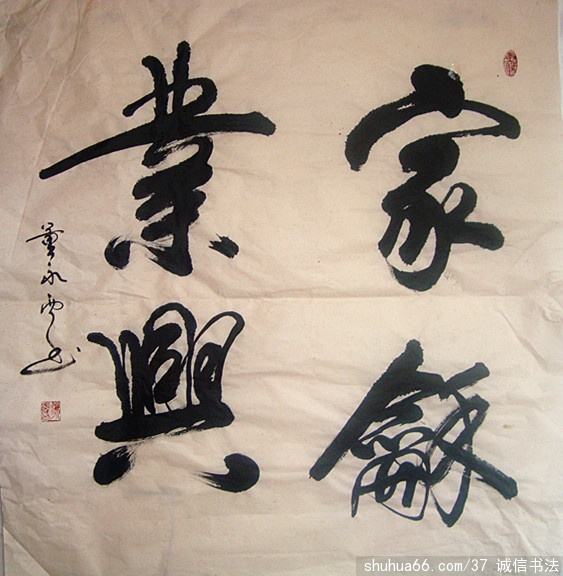 家龢
業興
董永雲书
shuhua66.com/37 诚信书法